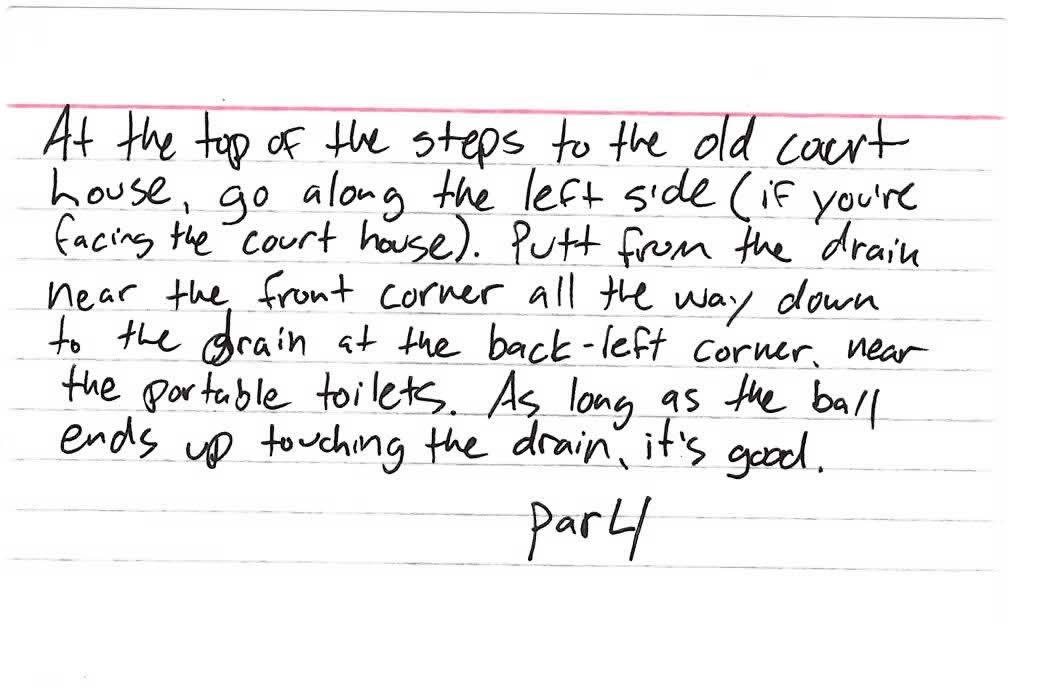 At the top of the steps to the old court
house, go along the left side (if you're
facing the court house). Putt from the drain
near the front corner all the way down
to the drain at the back-left corner, near
the portable toilets. As long as the ball
ends up touching the drain, it's good.
par 4